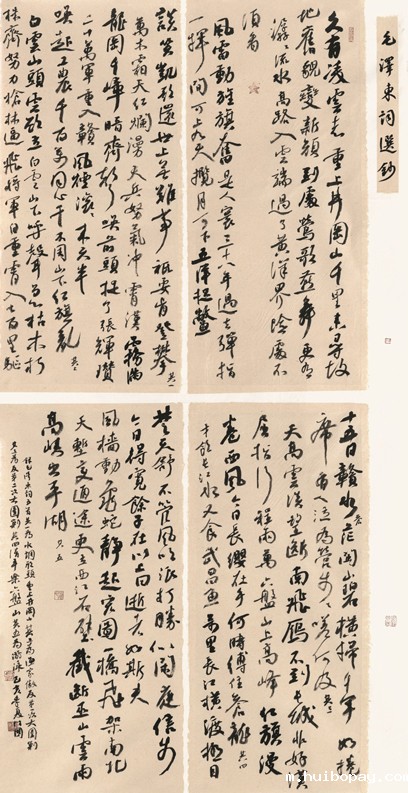 毛澤東詞選鈔
久有凌雲志重上井岡山千里來尋故
地舊貌變新顏到處鶯歌燕舞更有
潺潺流水高路入雲端過了黃洋界險處不
須看
風雷動旌旗奮是人寰三十八年過去彈指
一揮間可上九天攬月可下五洋捉鱉
談笑凱歌還世上無難事祇要肯登攀 其一
萬木霜天紅爛漫天兵怒氣沖霄漢霧滿
龍岡千嶂暗齊聲喚前頭捉了張輝瓚
二十萬軍重入贛風煙滾滾來天半
喚起工農千百萬同心干不周山下紅旗亂 其二
白雲山頭雲欲立白雲山下呼聲急枯木朽
株齊努力槍林逼飛將軍自重霄入七百里驅
十五日贛水蒼茫閩山碧橫掃千軍如捲
席有人泣為營步步嗟何及 其三
天高雲淡望斷南飛雁不到長城非好漢
屈指行程兩萬六盤山上高峰紅旗漫
卷西風今日長纓在手何時縛住蒼龍 其四
才飲長江水又食武昌魚萬里長江橫渡極目
楚天舒不管風吹浪打勝似閑庭信步
今日得寬餘子在川上曰逝者如斯夫
風檣動龜蛇靜起宏圖一橋飛架南北
天塹變通途更立西江石壁截斷巫山雲雨
高峽出平湖 其五
m.huibopay.com